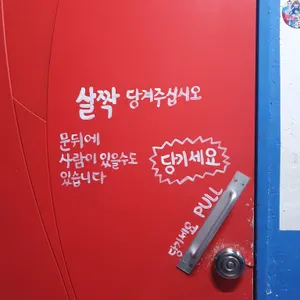 살짝 당겨주십시오
문뒤에
사람이 있을수도
있습니다
당기세요
PULL